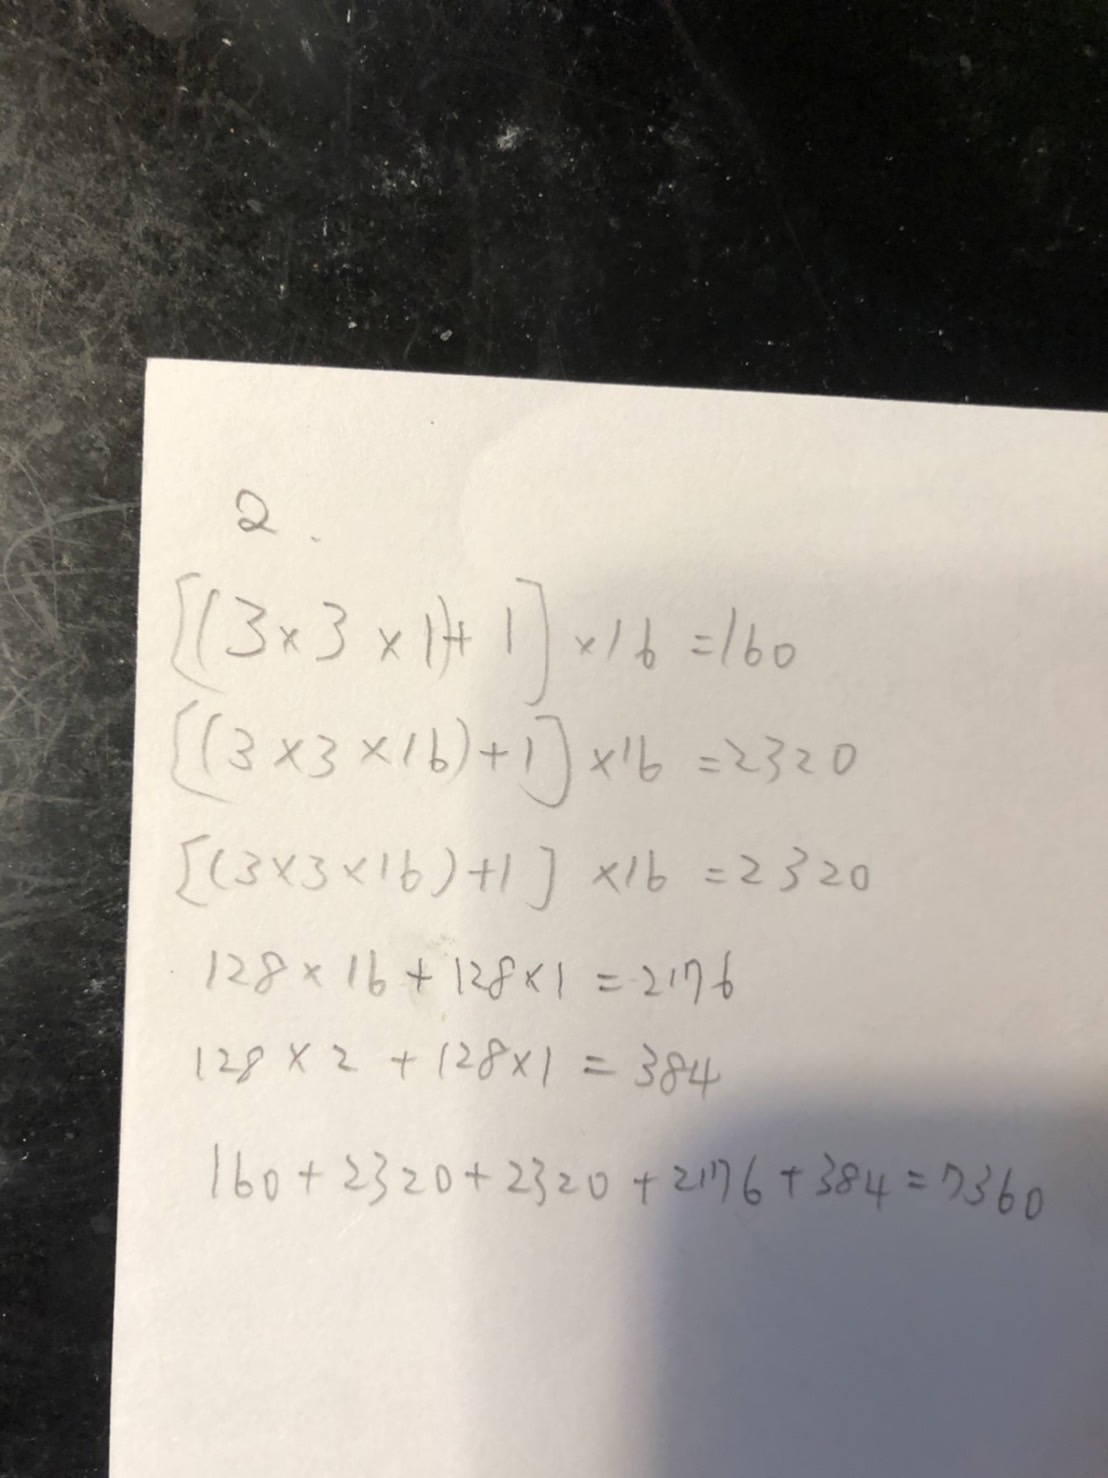 2.
[(3×3×1)+1]×16=160
[(3×3×16)+1]×16=2320
[(3×3×16)+1]×16=2320
128×16+128×1=2176
128×2+128×1=384
160+2320+2320+2176+384=7360